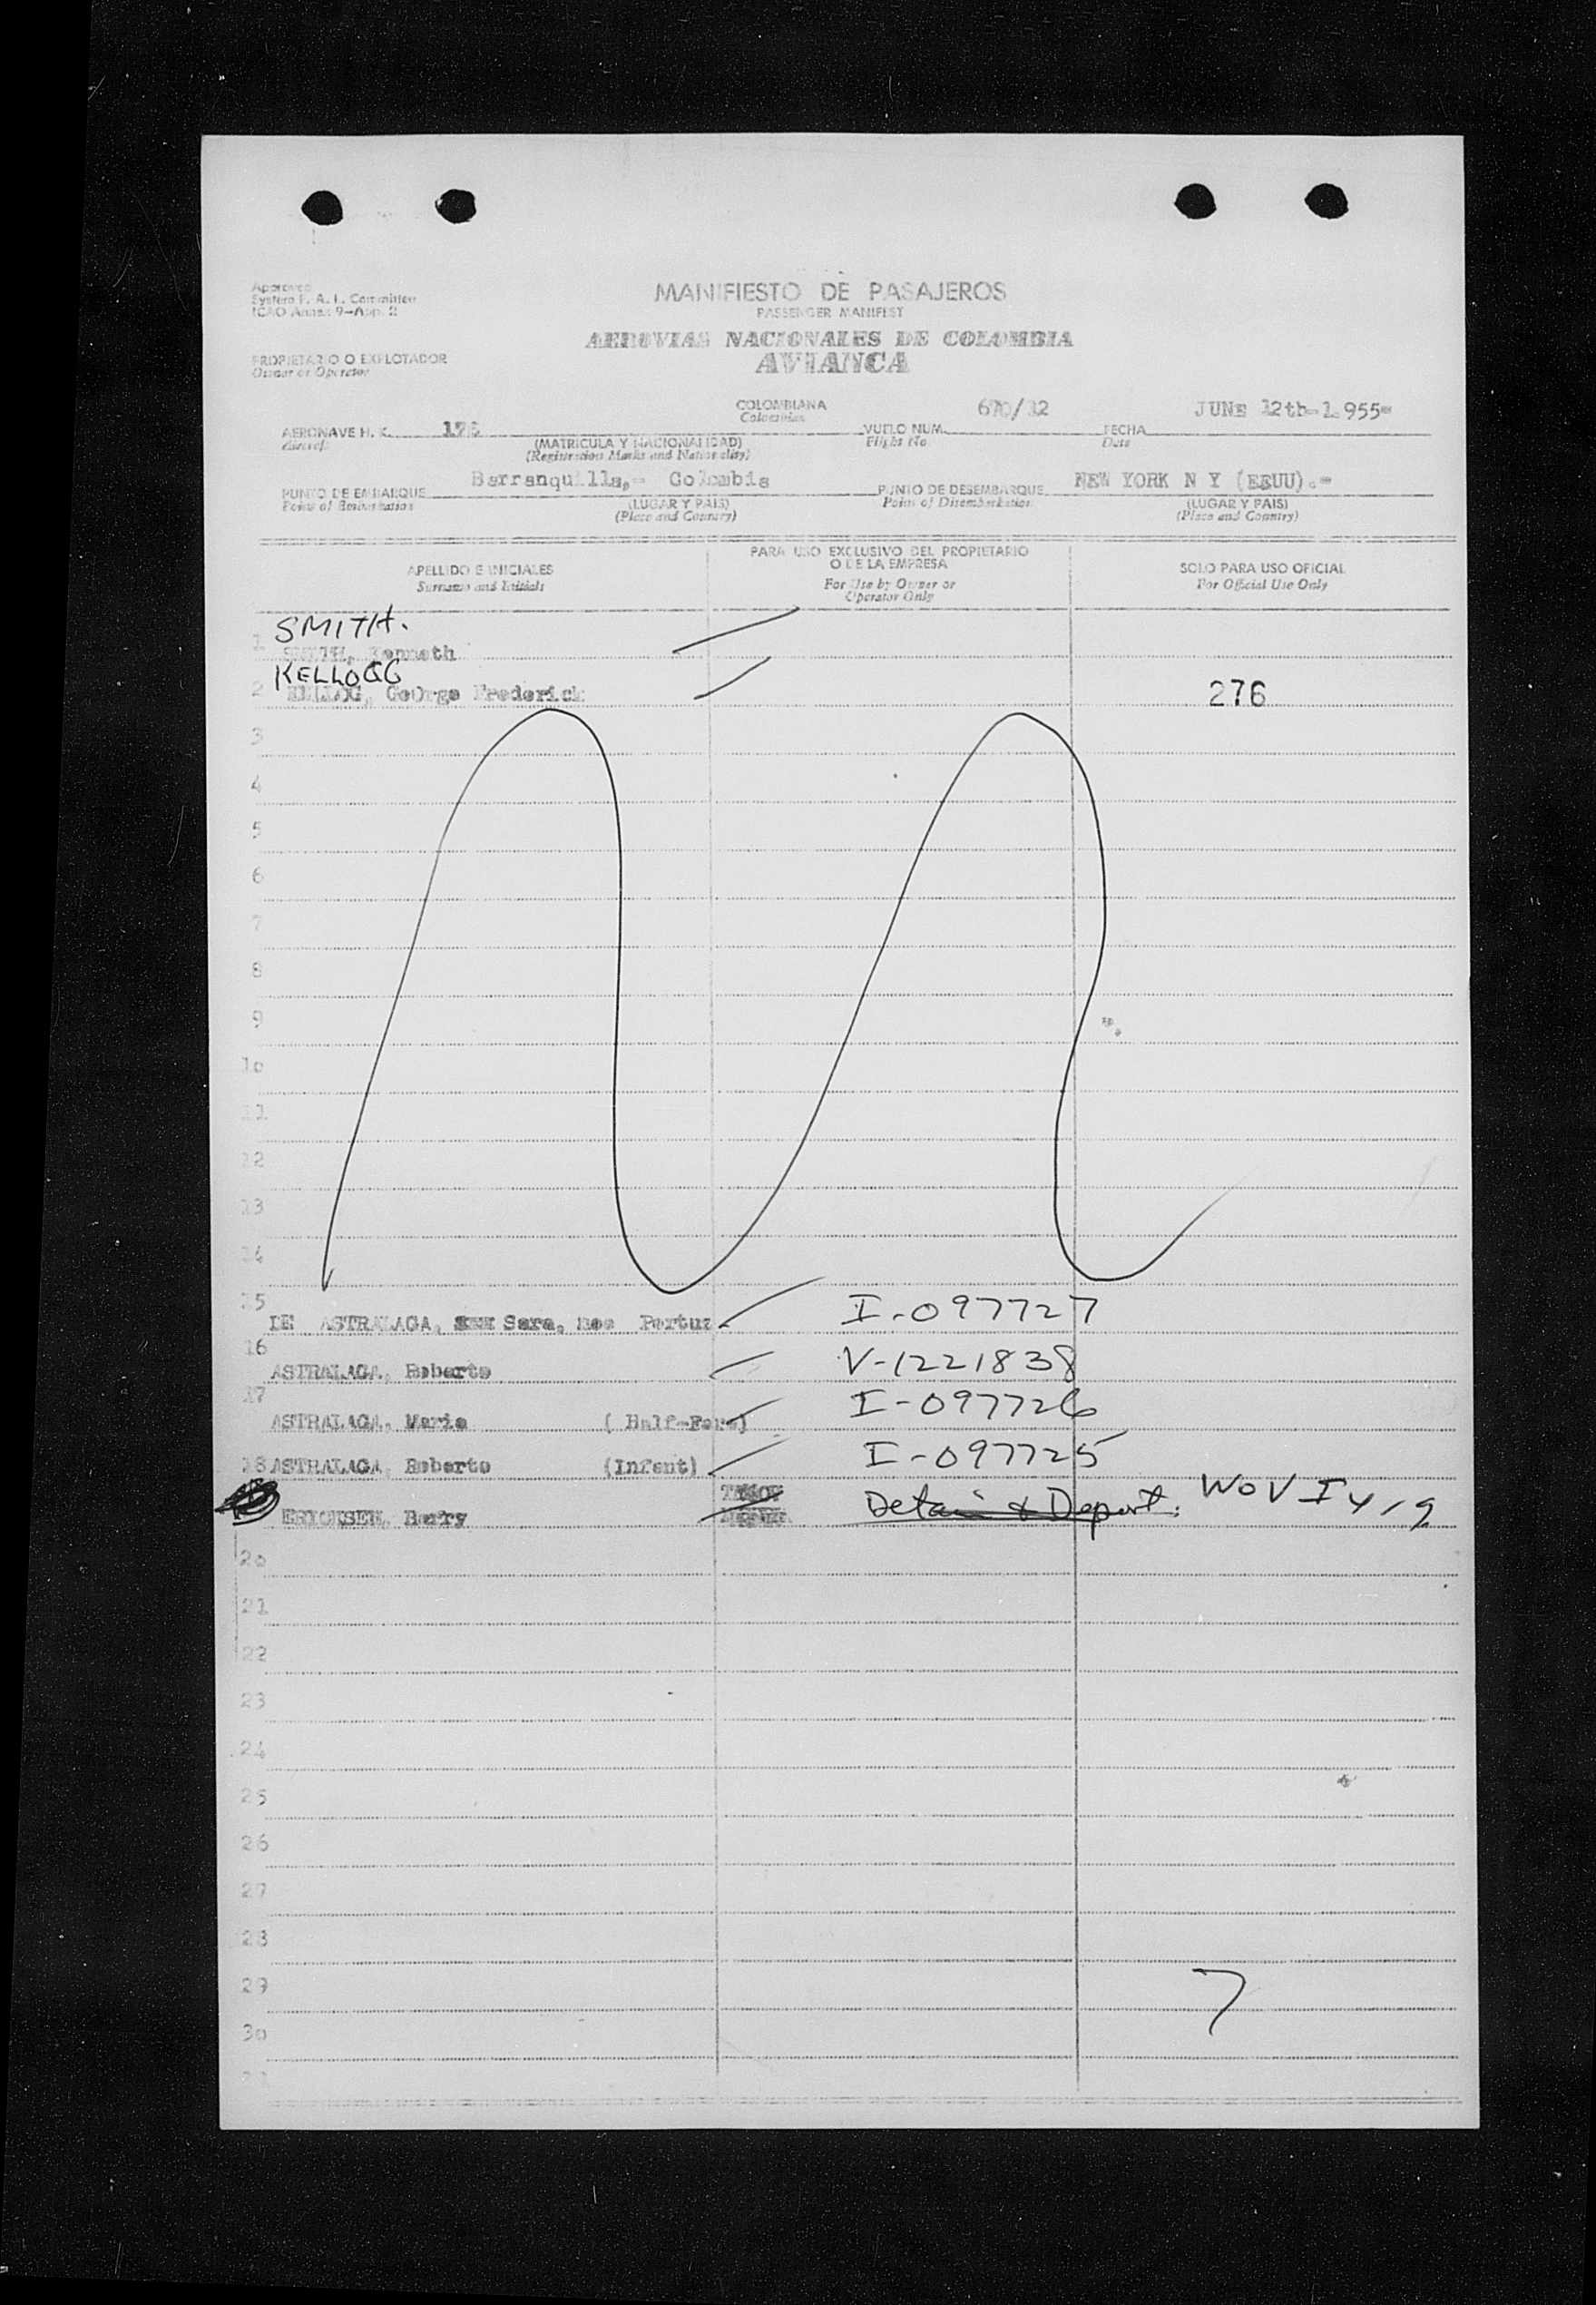 Approved
System F. A. L. Committee
ICAO Annex 9-App. 2
MANIFIESTO DE PASAJEROS
PASSENGER MANIFEST
AEROVIAS NACIONALES DE COLOMBIA
AVIANCA
PROPIETARIO O EXPLOTADOR
Owner or Operator
COLOMBIANA
Colombian
670/12
JUNE 12th-1.955=
AERONAVE H. K.
Aircraft
(MATRICULA Y NACIONALIDAD)
(Registration Marks and Nationality)
VUELO NUM.
Flight No.
FECHA
Date
Barranquilla,= Colombia
NEW YORK N Y (EEUU).=
PUNTO DE EMBARQUE
Point of Embarkation
(LUGAR Y PAIS)
(Place and Country)
PUNTO DE DESEMBARQUE
Point of Disembarkation
(LUGAR Y PAIS)
(Place and Country)
APELLIDO E INICIALES
Surname and Initials
PARA USO EXCLUSIVO DEL PROPIETARIO
O DE LA EMPRESA
For Use by Owner or
Operator Only
SOLO PARA USO OFICIAL
For Official Use Only
SMITH.
1 SMITH, Kenneth
KELLOGG
2 KELLOG, George Frederick 276
3
4
5
6
7
8
9
10
11
12
13
14
15
DE ASTRALAGA, Sara, nee Portuz I-097727
16
ASTRALAGA, Roberto V-1221838
17
ASTRALAGA, Maria (Half-Fare) I-097726
18 ASTRALAGA, Roberto (Infant) I-097725
ERICKSEN, Barry Detain & Deport. WOV I 4/9
20
21
22
23
24
25
26
27
28
29
7
30